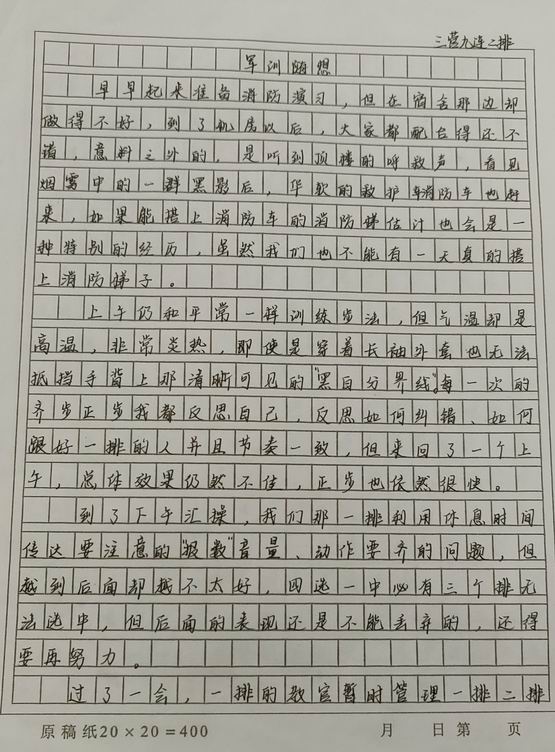 三营九连二排
军训随想
早早起来准备消防演习，但在宿舍那边却
做得不好，到了机房以后，大家都配合得还不
错，意料之外的，是听到顶楼的呼救声，看见
烟雾中的一群黑影后，华软的救护车消防车也赶
来，如果能搭上消防车的消防梯估计也会是一
种特别的经历，虽然我们也不能有一天真的搭
上消防梯子。
上午仍和平常一样训练步法，但气温却是
高温，非常炎热，即使是穿着长袖外套也无法
抵挡手背上那清晰可见的"黑白分界线"。每一次的
齐步正步我都反思自己，反思如何纠错、如何
跟好一排的人并且节奏一致，但来回了一个上
午，总体效果仍然不佳，正步也依然很快。
到了下午汇操，我们那一排利用休息时间
传达要注意的"报数"音量、动作要齐的问题，但
越到后面却越不太好，四选一中必有三个排无
法选中，但后面的表现还是不能丢弃的，还得
要再努力。
过了一会，一排的教官暂时管理一排二排
原稿纸20×20=400 月 日第 页